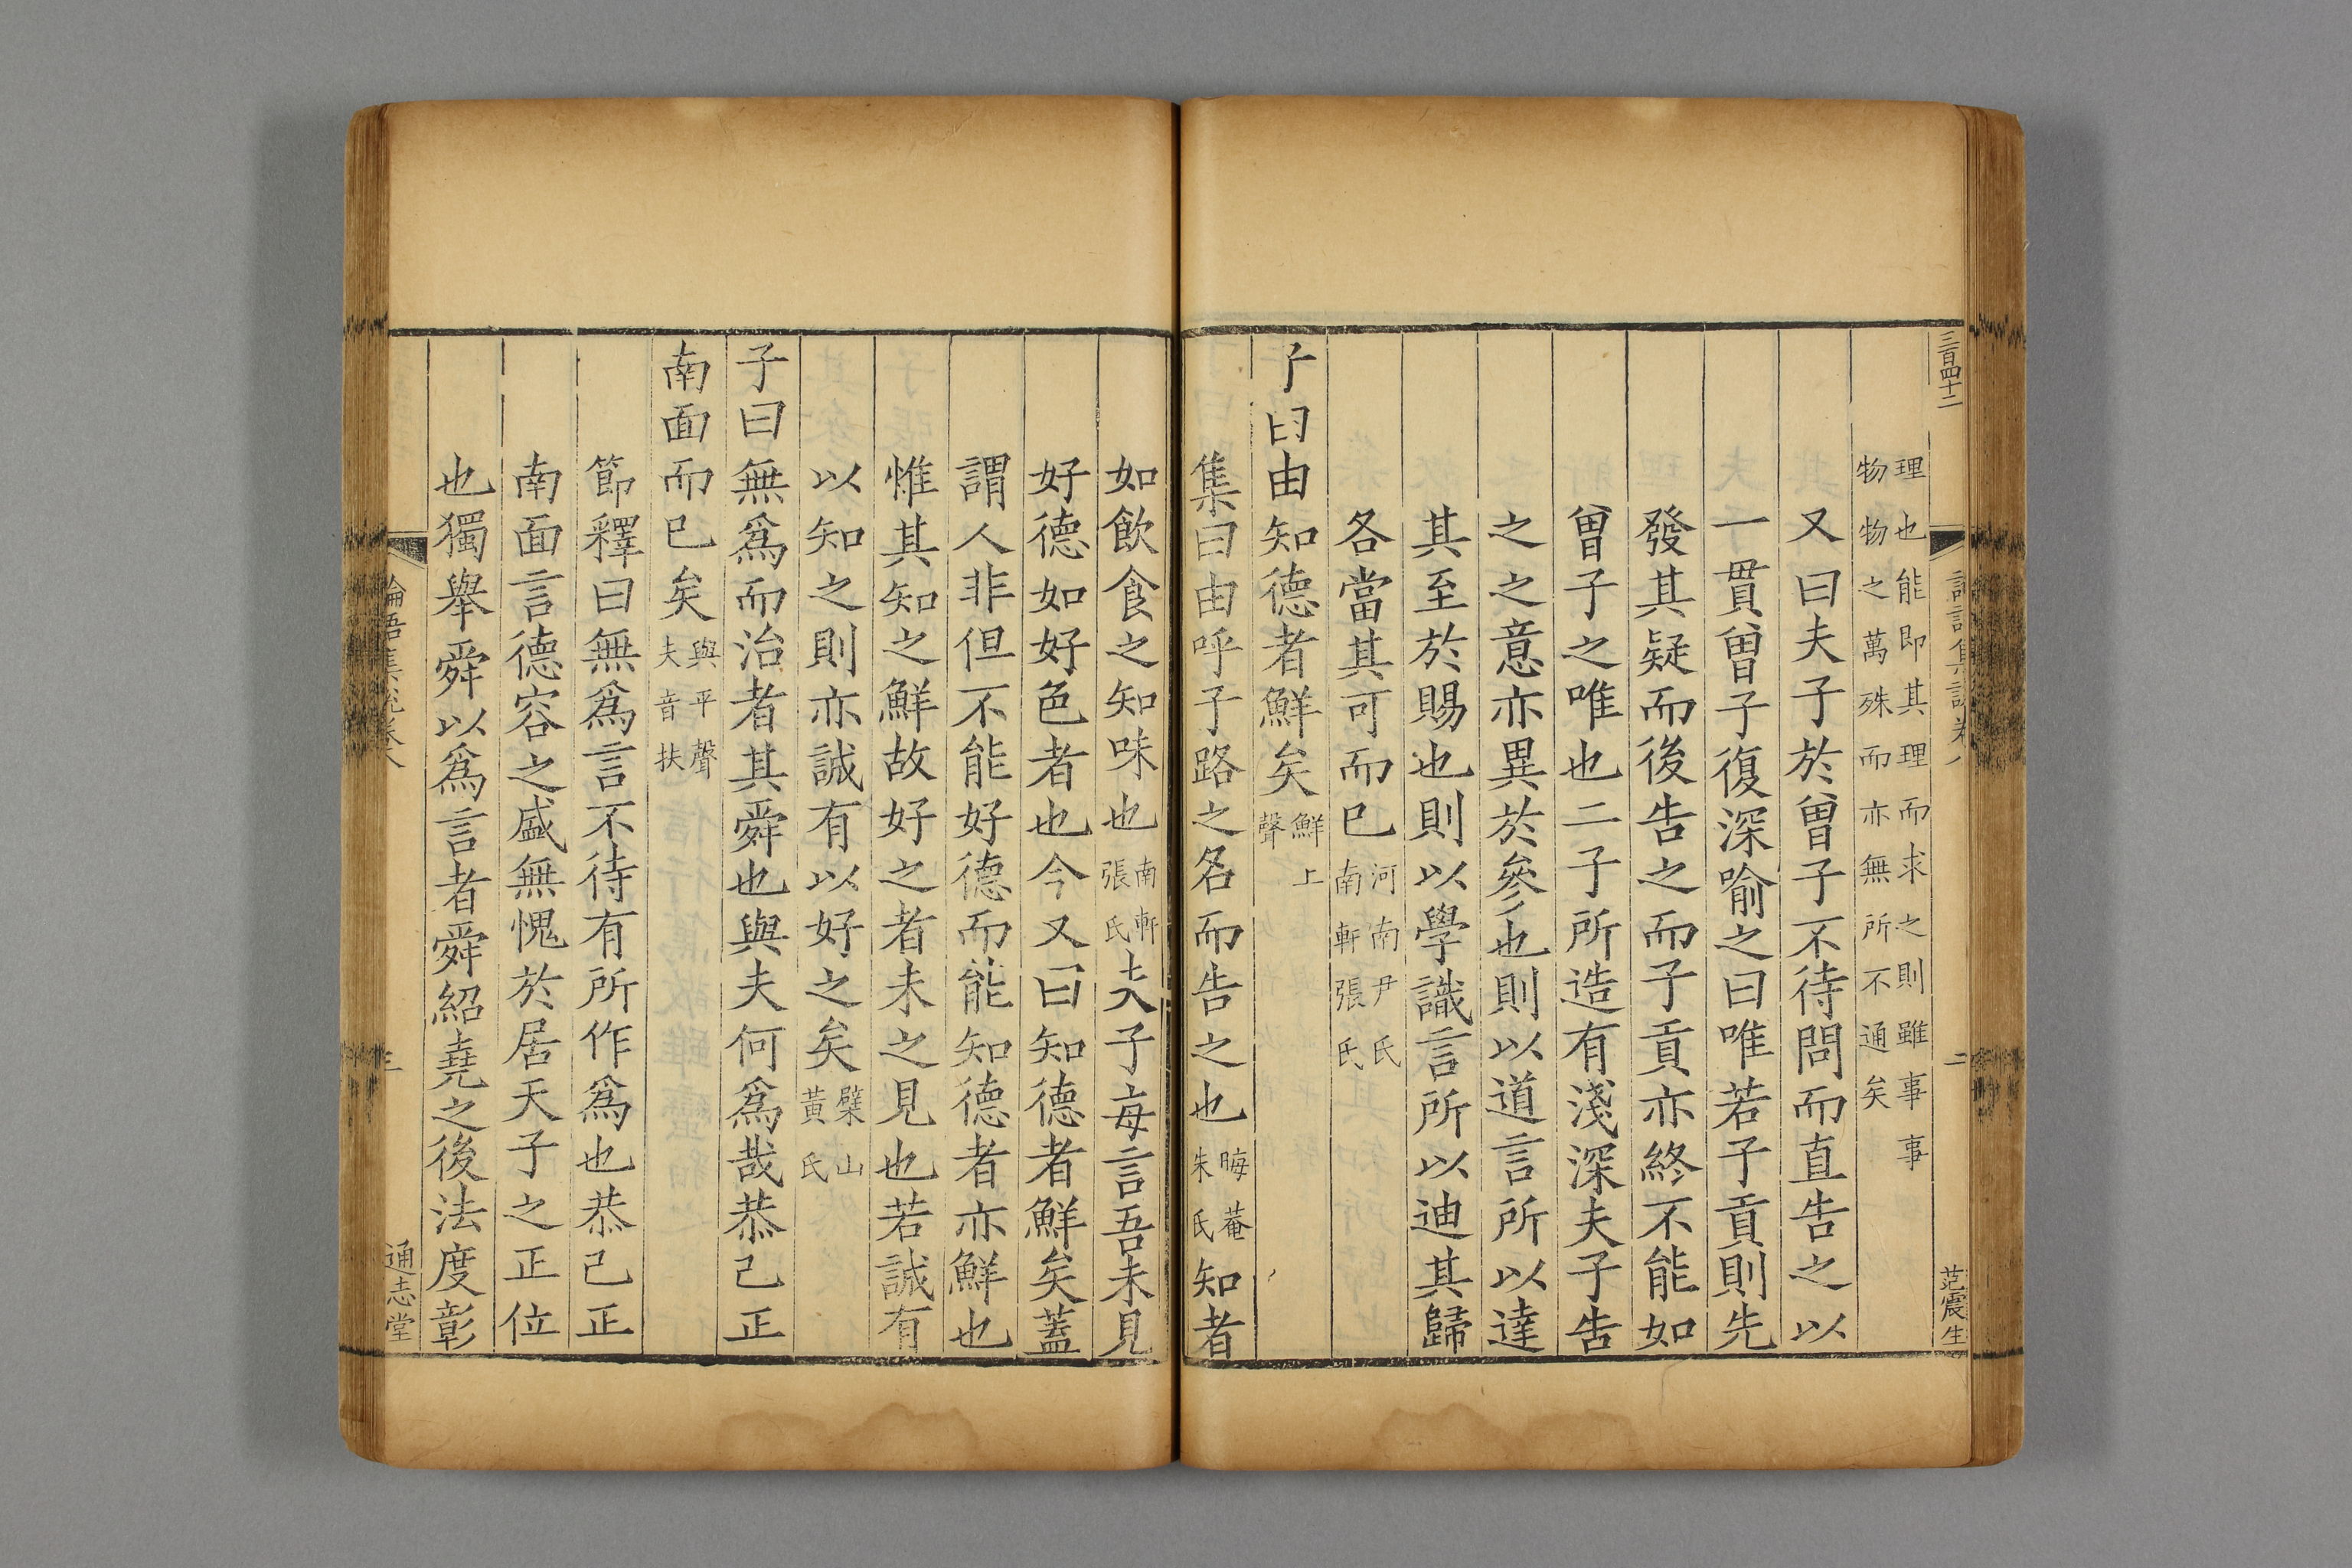 三百四十二
論語集說卷八
二
范震生
理也能即其理而求之則雖事事
物物之萬殊而亦無所不通矣
又曰夫子於曾子不待問而直告之以
一貫曾子復深喻之曰唯若子貢則先
發其疑而後告之而子貢亦終不能如
曾子之唯也二子所造有淺深夫子告
之之意亦異於參也則以道言所以達
其至於賜也則以學識言所以迪其歸
各當其可而已河南尹氏南軒張氏
子曰由知德者鮮矣鮮上聲
集曰由呼子路之名而告之也晦菴朱氏知者
如飲食之知味也南軒張氏夫子每言吾未見
好德如好色者也今又曰知德者鮮矣蓋
謂人非但不能好德而能知德者亦鮮也
惟其知之鮮故好之者未之見也若誠有
以知之則亦誠有以好之矣檗山黃氏
子曰無爲而治者其舜也與夫何爲哉恭己正
南面而已矣與平聲夫音扶
節釋曰無爲言不待有所作爲也恭己正
南面言德容之盛無愧於居天子之正位
也獨舉舜以爲言者舜紹堯之後法度彰
論語集說卷八
三
通志堂